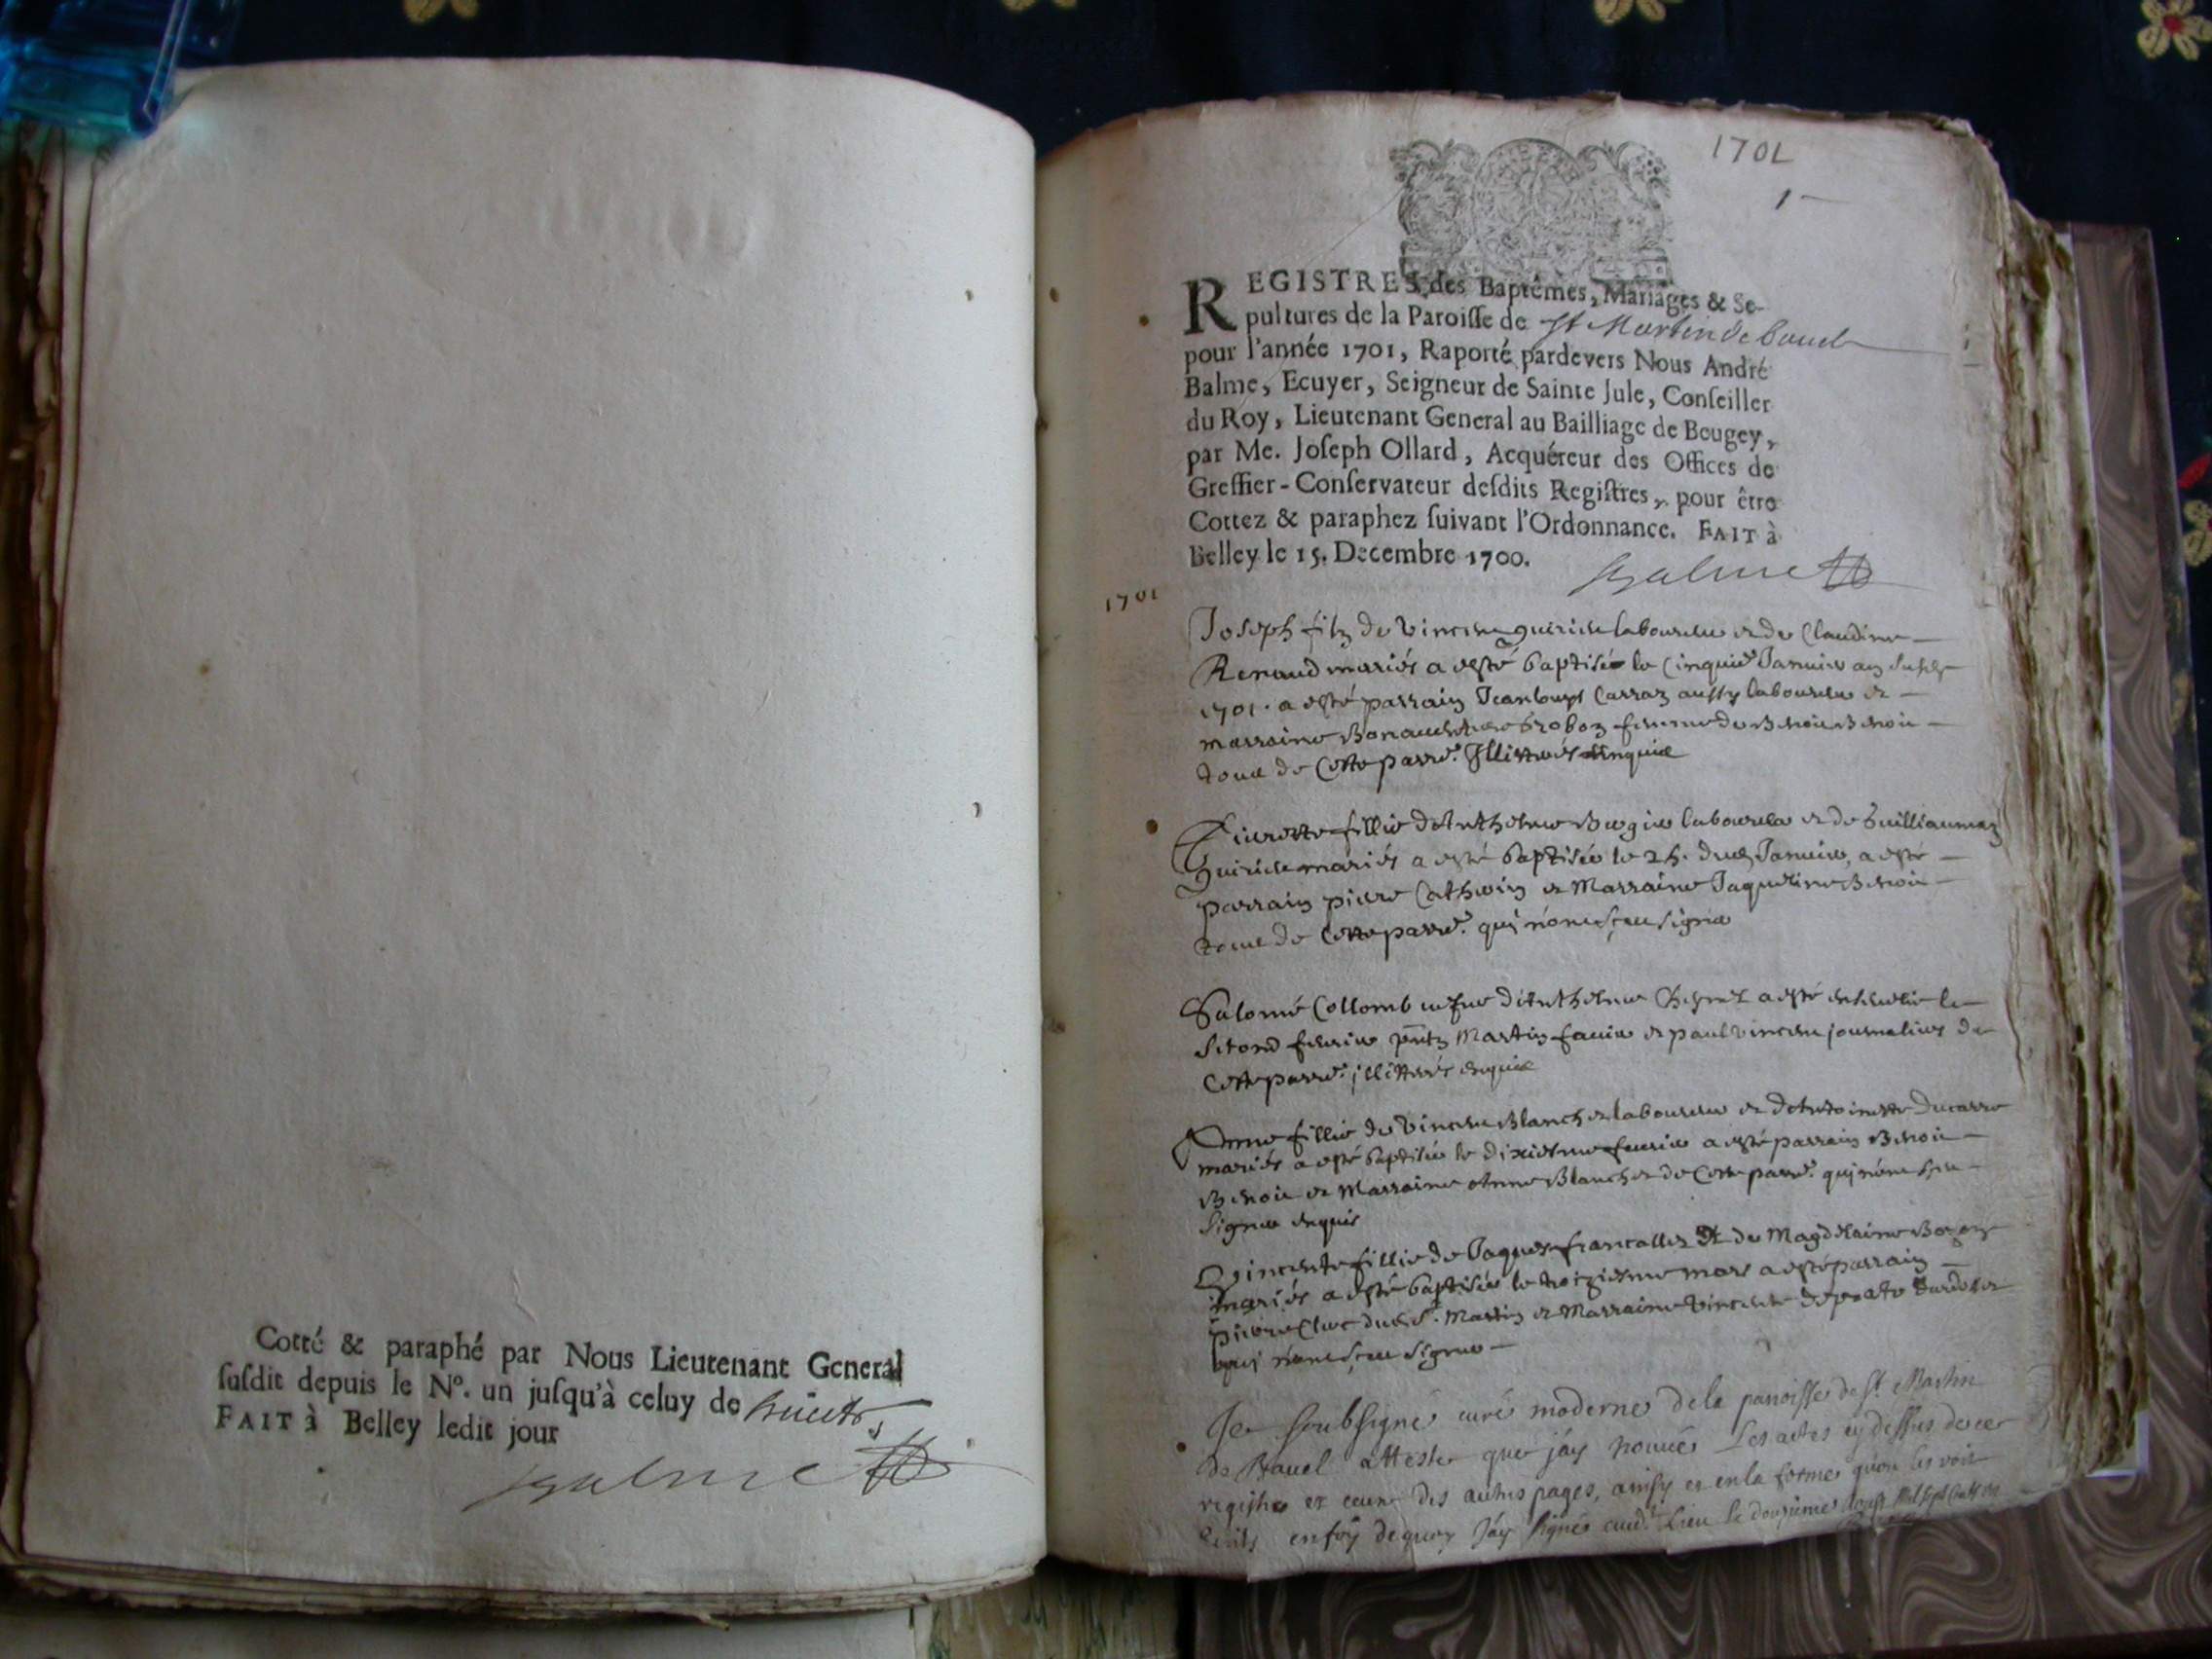 Cotté & paraphé par Nous Lieutenant General
ſuſdit depuis le Nº. un juſqu'à celuy de huict
FAIT à Belley ledit jour
Balme
1701
1
REGISTRES des Baptêmes, Mariages & Se-
pultures de la Paroiſſe de St Martin de bauel
pour l'année 1701, Raporté pardevers Nous André
Balme, Ecuyer, Seigneur de Sainte Jule, Conſeiller
du Roy, Lieutenant General au Bailliage de Beugey,
par Me. Joſeph Ollard, Acquéreur des Offices de
Greffier-Conſervateur deſdits Regiſtres, pour être
Cottez & paraphez ſuivant l'Ordonnance. FAIT à
Belley le 15. Decembre 1700.
Balme
1701
Joseph filz de Vincent laboureur et de Claudine
Renaud mariés a esté baptisé le Cinquie Janvier an
1701. a esté parrain Jean Carraz aussy laboureur et
marraine femme de Benoit Benoit
de Cette parre. Illitterés
Pierrette fillie laboureur et de
mariés a esté baptisée le 25. dud Janvier, a esté
parrain pierre et Marraine Jaqueline Benoit
de Cette parre. qui n'ont sçeu signer
Salomé Collomb a esté le
second fevrier pnts Martin favier et paul Vincent journaliers de
Cette parre. illitterés enquis
Anne fillie de Vincent Blanchet laboureur et
mariés a esté baptisée le dixiesme fevrier a esté parrain Benoit
Benoit et Marraine Anne Blanchet de Cette parre. qui n'ont sçeu
signer enquis
Vincente fillie de Jaques francallet et de Magdelaine
mariés a esté baptisée le mars a esté parrain
pierre dud St. Martin et Marraine Vincente
qui n'ont sçeu signer
Je soubsigné curé moderne de la paroisse de St. Martin
de Bauel atteste que j'ay trouvé Les actes cy dessus de ce
registre et ceux des autres pages, ainsy et en la forme qu'on les voit
en foy de quoy J'ay signé aud. Lieu le douzieme